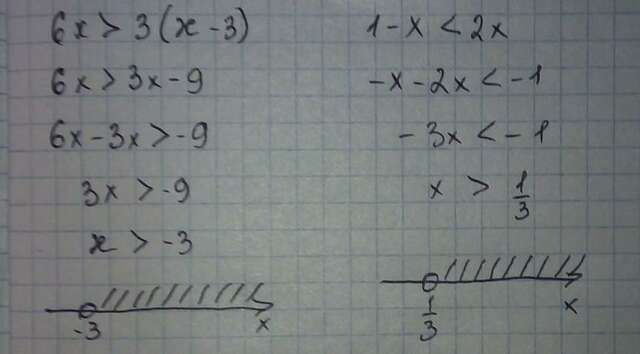 6x > 3(x - 3)
6x > 3x - 9
6x - 3x > -9
3x > -9
x > -3
-3 x
1 - x < 2x
-x - 2x < -1
-3x < -1
x > 1/3
1/3 x